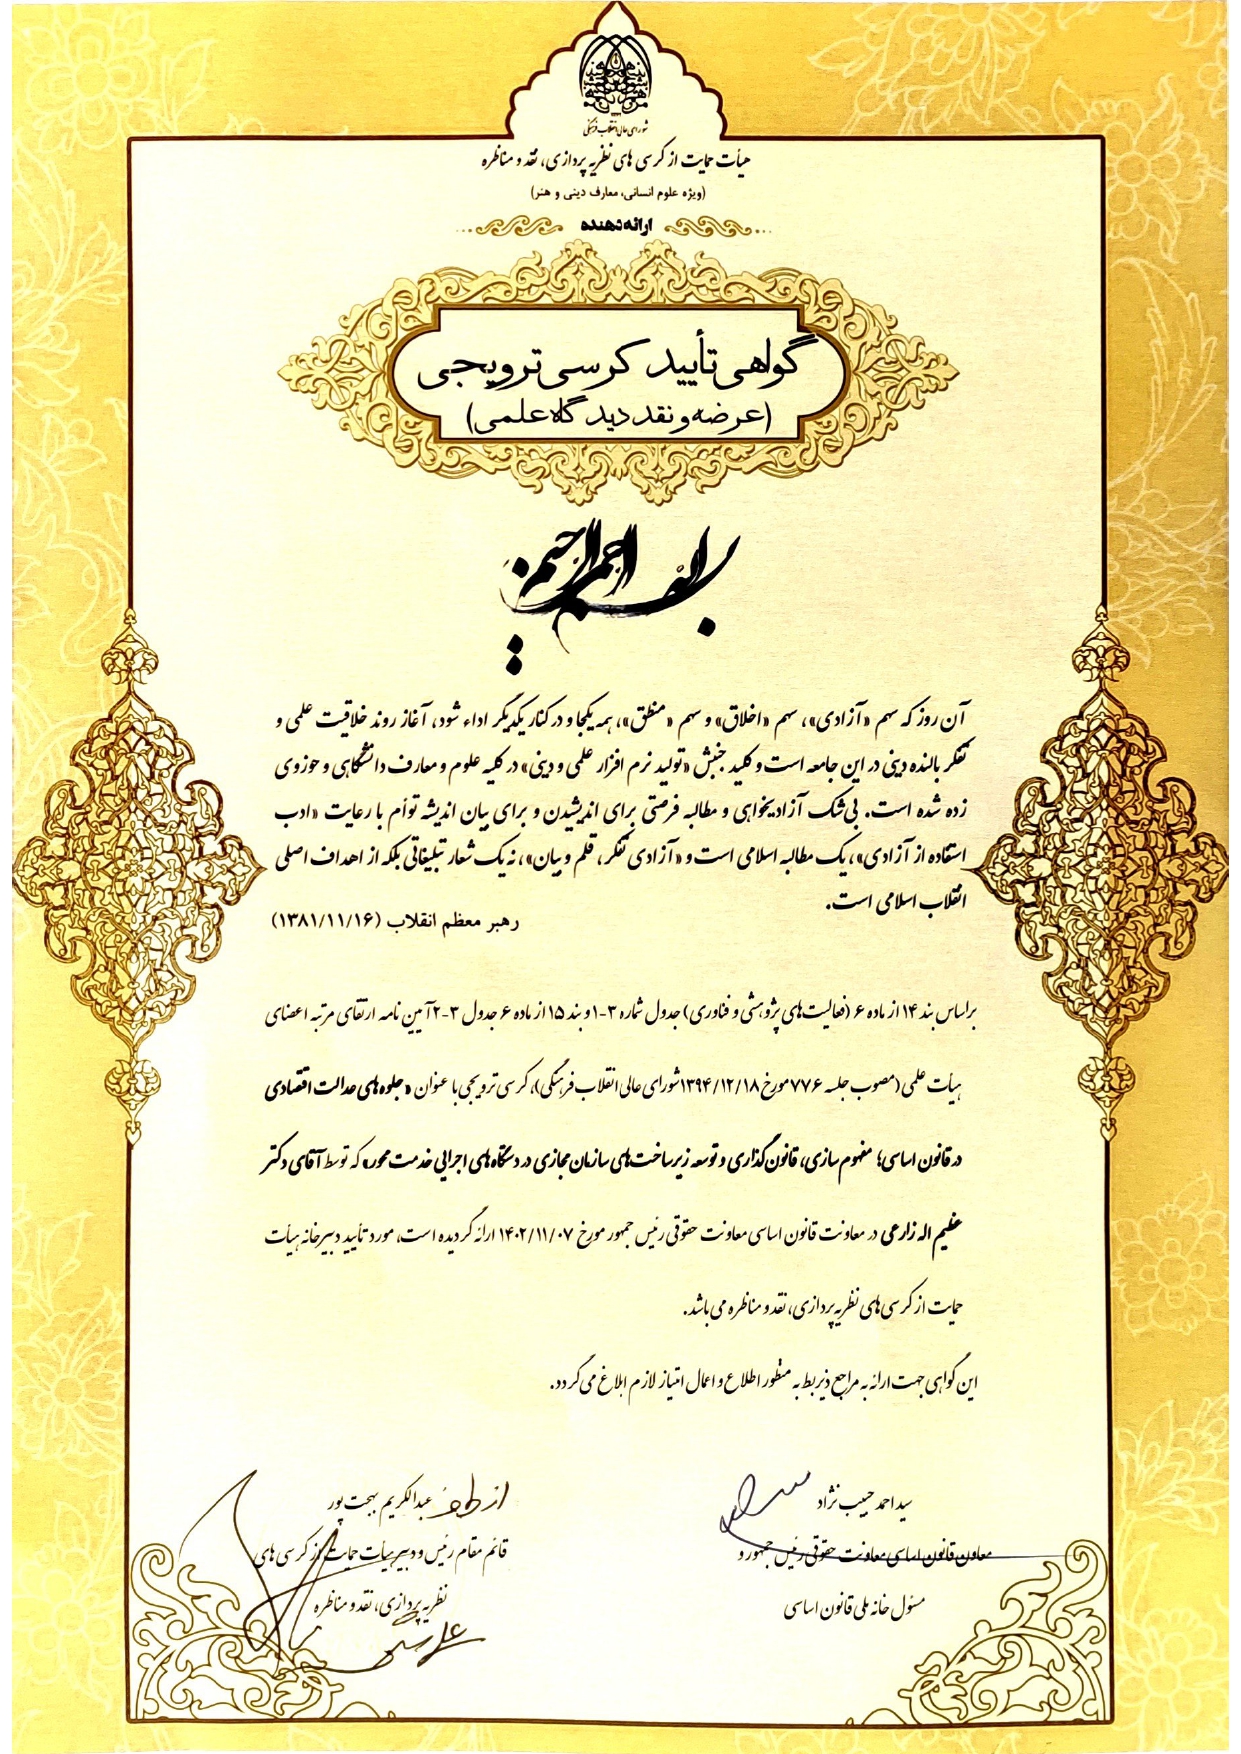 شورای عالی انقلاب فرهنگی
هیأت حمایت از کرسی های نظریه پردازی، نقد و مناظره
(ویژه علوم انسانی، معارف دینی و هنر)
ارائه‌دهنده
گواهی تأیید کرسی ترویجی
(عرضه و نقد دیدگاه علمی)
بسم الله الرحمن الرحیم
آن روز که سهم «آزادی»، سهم «اخلاق» و سهم «منطق»، همه یکجا و در کنار یکدیگر اداء شود، آغاز روند خلاقیت علمی و
تفکر بالنده دینی در این جامعه است و کلید جنبش «تولید نرم افزار علمی و دینی» در کلیه علوم و معارف دانشگاهی و حوزوی
زده شده است. بی‌شک آزادیخواهی و مطالبه فرصتی برای اندیشیدن و برای بیان اندیشه توأم با رعایت «ادب
استفاده از آزادی»، یک مطالبه اسلامی است و «آزادی تفکر، قلم و بیان»، نه یک شعار تبلیغاتی بلکه از اهداف اصلی
انقلاب اسلامی است.
رهبر معظم انقلاب (۱۳۸۱/۱۱/۱۶)
براساس بند ۱۴ از ماده ۶ (فعالیت‌های پژوهشی و فناوری) جدول شماره ۳-۱ و بند ۱۵ از ماده ۶ جدول ۳-۲ آیین نامه ارتقای مرتبه اعضای
هیأت علمی (مصوب جلسه ۷۷۶ مورخ ۱۳۹۴/۱۲/۱۸ شورای عالی انقلاب فرهنگی)، کرسی ترویجی با عنوان «جلوه های عدالت اقتصادی
در قانون اساسی؛ مفهوم سازی، قانون گذاری و توسعه زیرساخت‌های سازمان مجازی در دستگاه های اجرایی خدمت محور» که توسط آقای دکتر
عظیم اله زارعی در معاونت قانون اساسی معاونت حقوقی رئیس جمهور مورخ ۱۴۰۲/۱۱/۰۷ ارائه گردیده است، مورد تأیید دبیرخانه هیأت
حمایت از کرسی‌های نظریه‌پردازی، نقد و مناظره می باشد.
این گواهی جهت ارائه به مراجع ذیربط به منظور اطلاع و اعمال امتیاز لازم ابلاغ می‌گردد.
سید احمد حبیب نژاد
معاون قانون اساسی معاونت حقوقی رئیس جمهور و
مسئول خانه ملی قانون اساسی
از طرف عبدالکریم بهجت پور
قائم مقام رئیس و دبیر هیأت حمایت از کرسی های
نظریه پردازی، نقد و مناظره